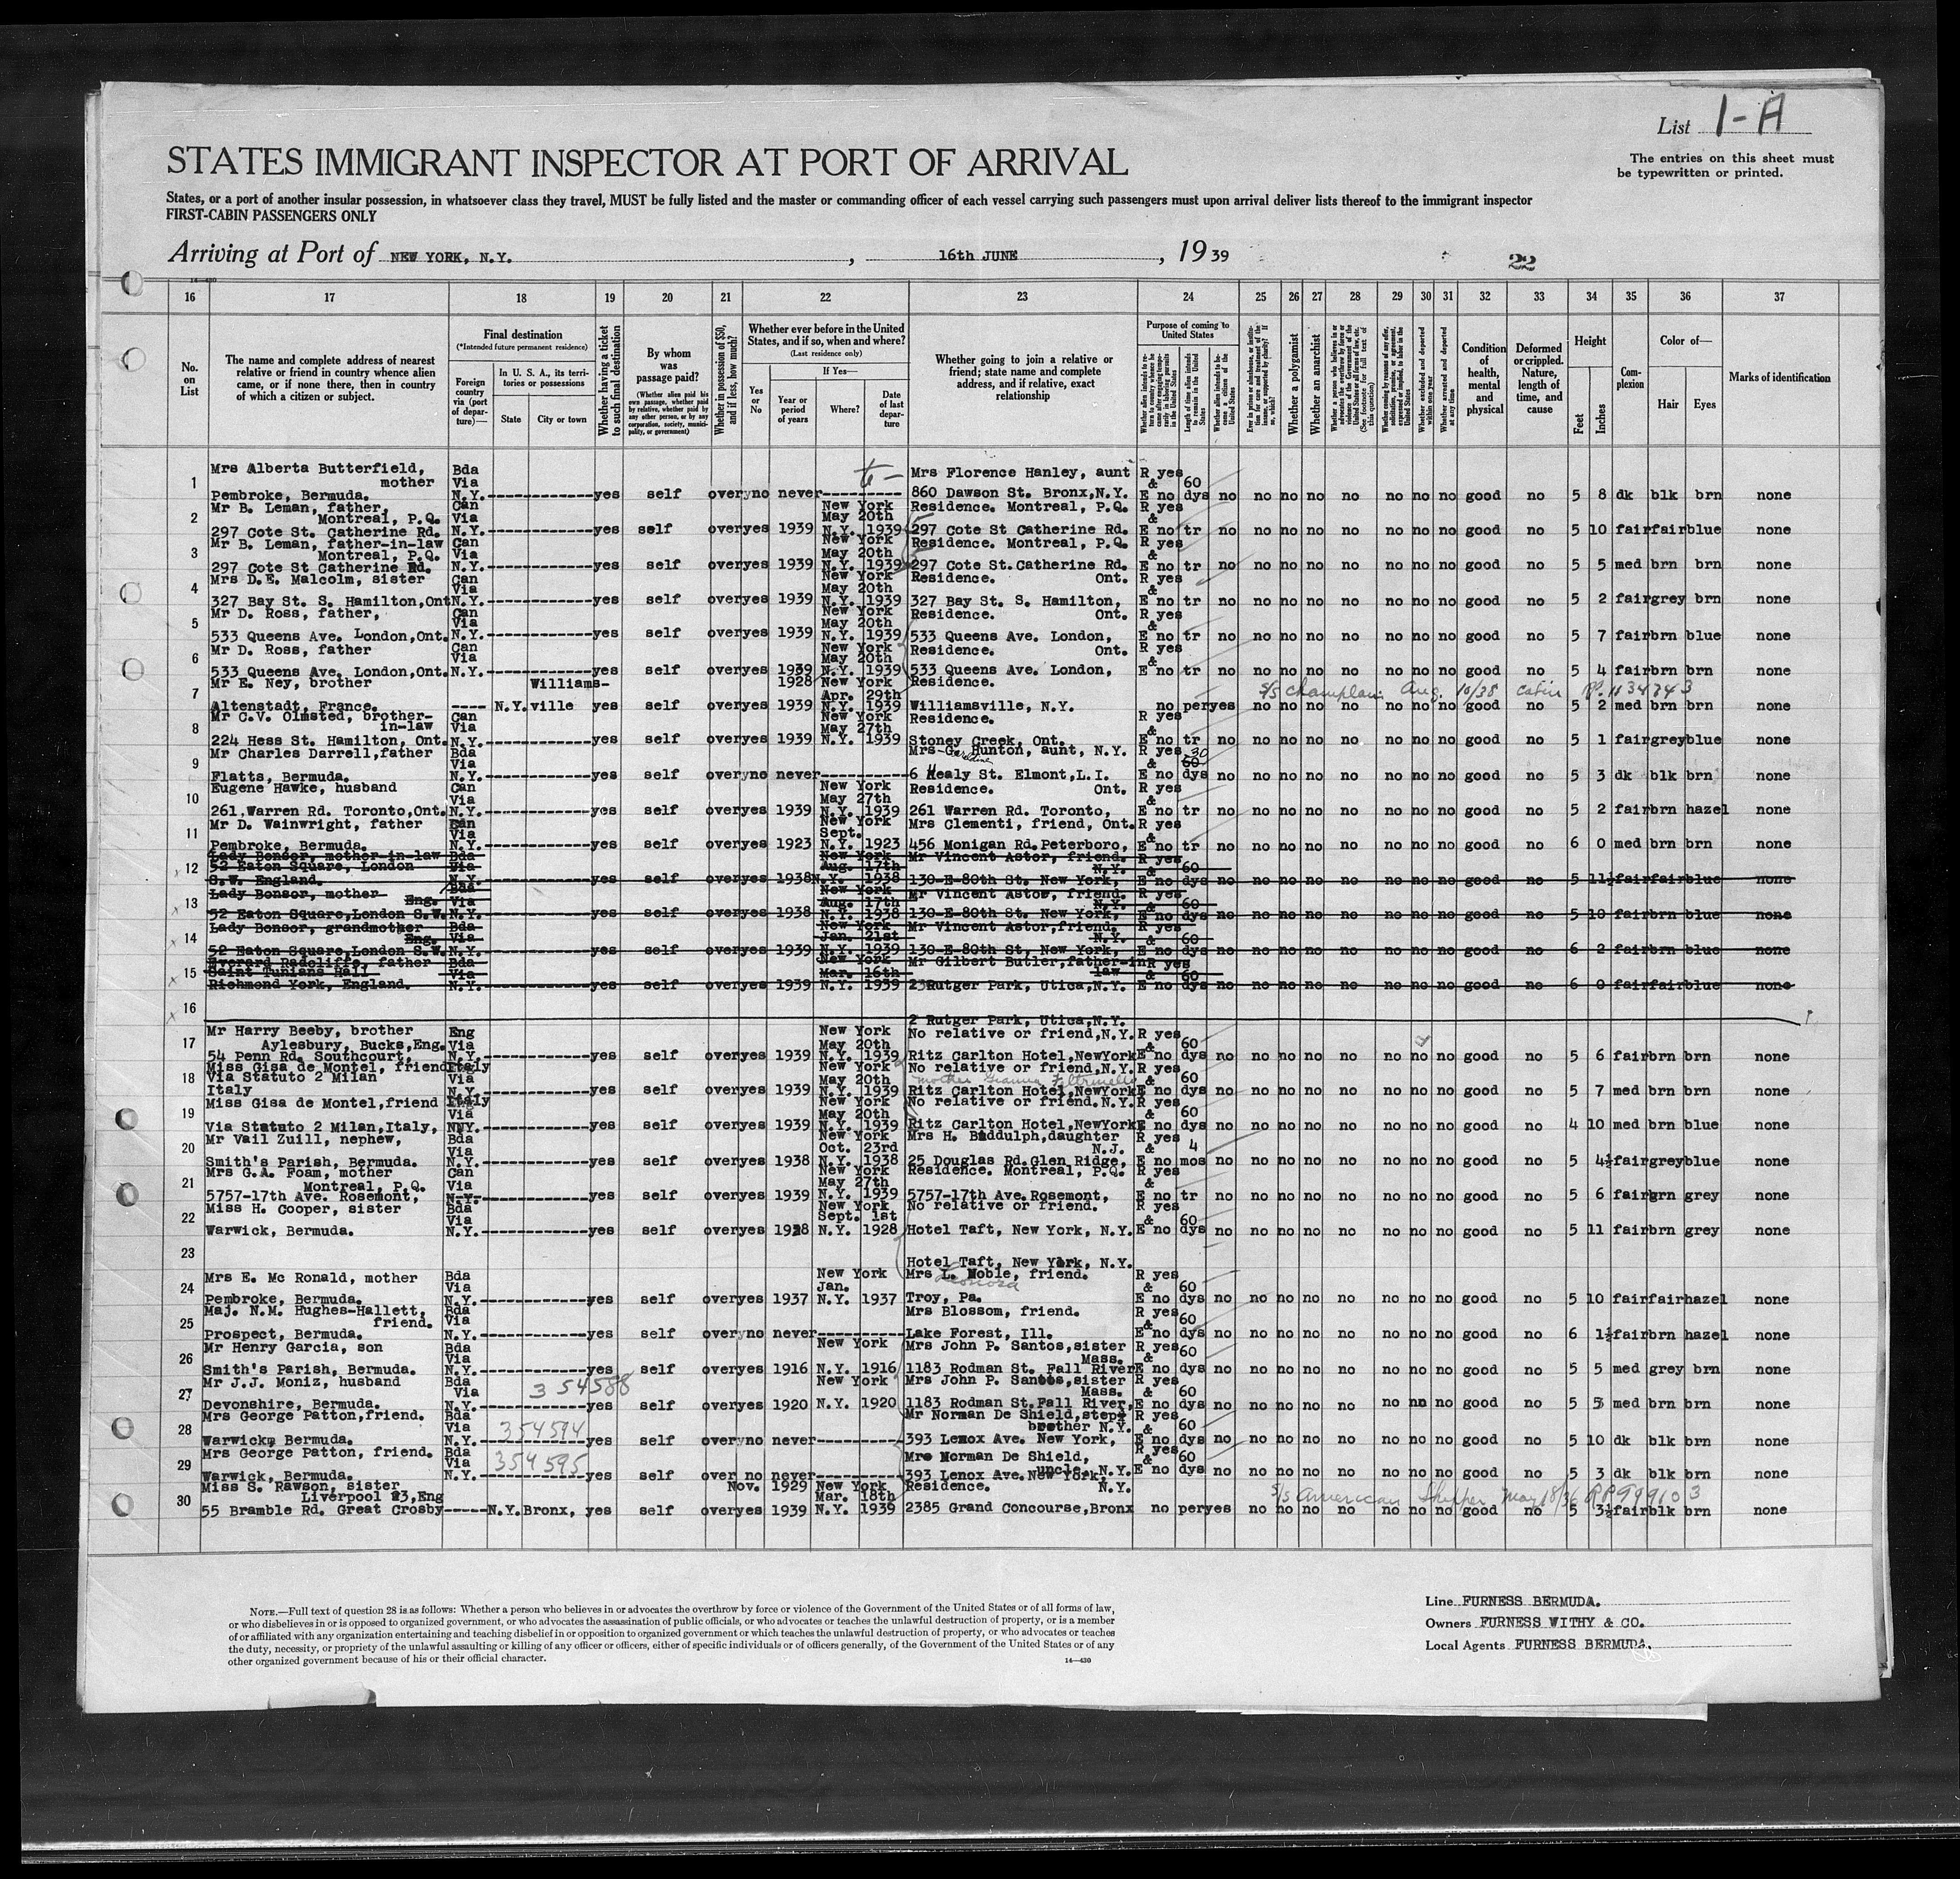 List 1-A
The entries on this sheet must
be typewritten or printed.
STATES IMMIGRANT INSPECTOR AT PORT OF ARRIVAL
States, or a port of another insular possession, in whatsoever class they travel, MUST be fully listed and the master or commanding officer of each vessel carrying such passengers must upon arrival deliver lists thereof to the immigrant inspector
FIRST-CABIN PASSENGERS ONLY
Arriving at Port of NEW YORK, N.Y. , 16th JUNE , 19 39
22
16 17 18 19 20 21 22 23 24 25 26 27 28 29 30 31 32 33 34 35 36 37
No. on List
The name and complete address of nearest relative or friend in country whence alien came, or if none there, then in country of which a citizen or subject.
Final destination
(*Intended future permanent residence)
Foreign country via (port of departure)—
In U. S. A., its territories or possessions
State City or town
Whether having a ticket to such final destination
By whom was passage paid?
(Whether alien paid his own passage, whether paid by relative, whether paid by any other person, or by any corporation, society, municipality, or government)
Whether in possession of $50, and if less, how much?
Whether ever before in the United States, and if so, when and where?
(Last residence only)
Yes or No
If Yes—
Year or period of years
Where?
Date of last departure
Whether going to join a relative or friend; state name and complete address, and if relative, exact relationship
Purpose of coming to United States
Length of time alien intends to remain in the United States
Whether alien intends to become a citizen of the United States
Whether a polygamist
Whether an anarchist
Whether excluded and deported within one year
Whether arrested and deported at any time
Condition of health, mental and physical
Deformed or crippled. Nature, length of time, and cause
Height
Feet Inches
Complexion
Color of—
Hair Eyes
Marks of identification
1 Mrs Alberta Butterfield, mother Pembroke, Bermuda. Bda Via N.Y. yes self over no never Mrs Florence Hanley, aunt 860 Dawson St. Bronx,N.Y. R yes & E no 60 dys no no no no no no no no good no 5 8 dk blk brn none
2 Mr B. Leman, father, Montreal, P.Q. 297 Cote St. Catherine Rd. Can Via N.Y. yes self over yes 1939 New York May 20th N.Y. 1939 Residence. Montreal, P.Q. 297 Cote St Catherine Rd. R yes & E no tr no no no no no no no no good no 5 10 fair fair blue none
3 Mr B. Leman, father-in-law Montreal, P.Q. 297 Cote St Catherine Rd. Can Via N.Y. yes self over yes 1939 New York May 20th N.Y. 1939 Residence. Montreal, P.Q. 297 Cote St.Catherine Rd. R yes & E no tr no no no no no no no no good no 5 5 med brn brn none
4 Mrs D.E. Malcolm, sister 327 Bay St. S. Hamilton,Ont Can Via N.Y. yes self over yes 1939 New York May 20th N.Y. 1939 Residence. Ont. 327 Bay St. S. Hamilton, R yes & E no tr no no no no no no no no good no 5 2 fair grey brn none
5 Mr D. Ross, father, 533 Queens Ave. London,Ont. Can Via N.Y. yes self over yes 1939 New York May 20th N.Y. 1939 Residence. Ont. 533 Queens Ave. London, R yes & E no tr no no no no no no no no good no 5 7 fair brn blue none
6 Mr D. Ross, father 533 Queens Ave. London,Ont. Can Via N.Y. yes self over yes 1939 New York May 20th N.Y. 1939 Residence. Ont. 533 Queens Ave. London, R yes & E no tr no no no no no no no no good no 5 4 fair brn brn none
7 Mr E. Ney, brother Altenstadt, France. ---- N.Y. Williams-ville yes self over yes 1928 1939 New York Apr. 29th N.Y. 1939 Residence. Williamsville, N.Y. no per yes no no no no no no no good no 5 2 med brn brn none
S/S Champlain Aug. 10/38 Cabin
8 Mr C.V. Olmsted, brother-in-law 224 Hess St. Hamilton, Ont. Can Via N.Y. yes self over yes 1939 New York May 27th N.Y. 1939 Residence. Stoney Creek, Ont. R yes & E no tr no no no no no no no no good no 5 1 fair grey blue none
9 Mr Charles Darrell,father Flatts, Bermuda. Bda Via N.Y. yes self over no never Mrs G. Hunton, aunt, N.Y. 6 Healy St. Elmont,L.I. R yes & E no 30 60 dys no no no no no no no no good no 5 3 dk blk brn none
10 Eugene Hawke, husband 261,Warren Rd. Toronto,Ont. Can Via N.Y. yes self over yes 1939 New York May 27th N.Y. 1939 Residence. Ont. 261 Warren Rd. Toronto, R yes & E no tr no no no no no no no no good no 5 2 fair brn hazel none
11 Mr D. Wainwright, father Pembroke, Bermuda. Via N.Y. yes self over yes 1923 New York Sept. N.Y. 1923 Mrs Clementi, friend, Ont. 456 Monigan Rd.Peterboro, R yes & E no tr no no no no no no no no good no 6 0 med brn brn none
12 Lady Bonsor, mother-in-law 52 Eaton Square, London S.W. England. Bda Via N.Y. yes self over yes 1938 New York Aug. 17th N.Y. 1938 Mr Vincent Astor, friend. N.Y. 130-E-80th St. New York, R yes & E no 60 dys no no no no no no no no good no 5 11½ fair fair blue none
13 Lady Bonsor, mother Eng. 52 Eaton Square,London S.W. Bda Via N.Y. yes self over yes 1938 New York Aug. 17th N.Y. 1938 Mr Vincent Astor, friend. N.Y. 130-E-80th St. New York, R yes & E no 60 dys no no no no no no no no good no 5 10 fair brn blue none
14 Lady Bonsor, grandmother Eng. 52 Eaton Square,London S.W. Bda Via N.Y. yes self over yes 1939 New York Jan. 21st N.Y. 1939 Mr Vincent Astor,friend. N.Y. 130-E-80th St, New York, R yes & E no 60 dys no no no no no no no no good no 6 2 fair brn blue none
15 Everard Radcliffe, father Saint Tunians Hall Richmond York, England. Bda Via N.Y. yes self over yes 1939 New York Mar. 16th N.Y. 1939 Mr Gilbert Butler,father-in law Rutger Park, Utica,N.Y. R yes & E no 60 dys no no no no no no no no good no 6 0 fair fair blue none
16 2 Rutger Park, Utica,N.Y.
17 Mr Harry Beeby, brother Aylesbury, Bucks,Eng. 54 Penn Rd. Southcourt, Eng Via N.Y. yes self over yes 1939 New York May 20th N.Y. 1939 No relative or friend,N.Y. Ritz Carlton Hotel,NewYork R yes & E no 60 dys no no no no no no no no good no 5 6 fair brn brn none
18 Miss Gisa de Montel, friend Via Statuto 2 Milan Italy Italy Via N.Y. yes self over yes 1939 New York May 20th N.Y. 1939 No relative or friend,N.Y. mother Ritz Carlton Hotel,NewYork R yes & E no 60 dys no no no no no no no no good no 5 7 med brn brn none
19 Miss Gisa de Montel,friend Via Statuto 2 Milan,Italy, Italy Via N.Y. yes self over yes 1939 New York May 20th N.Y. 1939 No relative or friend.N.Y. Ritz Carlton Hotel,NewYork R yes & E no 60 dys no no no no no no no no good no 4 10 med brn blue none
20 Mr Vail Zuill, nephew, Smith's Parish, Bermuda. Bda Via N.Y. yes self over yes 1938 New York Oct. 23rd N.Y. 1938 Mrs H. Biddulph,daughter N.J. 25 Douglas Rd.Glen Ridge, R yes & E no 4 mos no no no no no no no no good no 5 4½ fair grey blue none
21 Mrs G.A. Foam, mother Montreal, P.Q. 5757-17th Ave. Rosemont, Can Via N.Y. yes self over yes 1939 New York May 27th N.Y. 1939 Residence. Montreal, P.Q. 5757-17th Ave.Rosemont, R yes & E no tr no no no no no no no no good no 5 6 fair brn grey none
22 Miss H. Cooper, sister Warwick, Bermuda. Bda Via N.Y. yes self over yes 1928 New York Sept. 1st N.Y. 1928 No relative or friend. Hotel Taft, New York, N.Y. R yes & E no 60 dys no no no no no no no no good no 5 11 fair brn grey none
23 Hotel Taft, New York, N.Y.
24 Mrs E. Mc Ronald, mother Pembroke, Bermuda. Bda Via N.Y. yes self over yes 1937 New York Jan. N.Y. 1937 Mrs L. Noble, friend. Leonora Troy, Pa. R yes & E no 60 dys no no no no no no no no good no 5 10 fair fair hazel none
25 Maj. N.M. Hughes-Hallett, friend. Prospect, Bermuda. Bda Via N.Y. yes self over no never Mrs Blossom, friend. Lake Forest, Ill. R yes & E no 60 dys no no no no no no no no good no 6 1½ fair brn hazel none
26 Mr Henry Garcia, son Smith's Parish, Bermuda. Bda Via N.Y. yes self over yes 1916 New York N.Y. 1916 Mrs John P. Santos,sister Mass. 1183 Rodman St. Fall River R yes & E no 60 dys no no no no no no no no good no 5 5 med grey brn none
27 Mr J.J. Moniz, husband Devonshire, Bermuda. Bda Via N.Y. 354588 yes self over yes 1920 New York N.Y. 1920 Mrs John P. Santos,sister Mass. 1183 Rodman St.Fall River, R yes & E no 60 dys no no no no no no no no good no 5 5 med brn brn none
28 Mrs George Patton,friend. Warwick, Bermuda. Bda Via N.Y. 354594 yes self over no never Mr Norman De Shield,step brother N.Y. 393 Lenox Ave. New York, R yes & E no 60 dys no no no no no no no no good no 5 10 dk blk brn none
29 Mrs George Patton, friend. Warwick, Bermuda. Bda Via N.Y. 354595 yes self over no never Mr Norman De Shield, uncle, N.Y. 393 Lenox Ave.New York, R yes & E no 60 dys no no no no no no no no good no 5 3 dk blk brn none
30 Miss S. Rawson, sister Liverpool 23,Eng 55 Bramble Rd. Great Crosby N.Y. Bronx, yes self over yes Nov. 1929 1939 New York Mar. 18th N.Y. 1939 Residence. N.Y. 2385 Grand Concourse,Bronx no per yes no no no no no no no good no 5 3½ fair blk brn none
S/S American Shipper May 18/36
NOTE.—Full text of question 28 is as follows: Whether a person who believes in or advocates the overthrow by force or violence of the Government of the United States or of all forms of law,
or who disbelieves in or is opposed to organized government, or who advocates the assassination of public officials, or who advocates or teaches the unlawful destruction of property, or is a member
of or affiliated with any organization entertaining and teaching disbelief in or opposition to organized government or which teaches the unlawful destruction of property, or who advocates or teaches
the duty, necessity, or propriety of the unlawful assaulting or killing of any officer or officers, either of specific individuals or of officers generally, of the Government of the United States or of any
other organized government because of his or their official character.
14—430
Line FURNESS BERMUDA.
Owners FURNESS WITHY & CO.
Local Agents FURNESS BERMUDA.